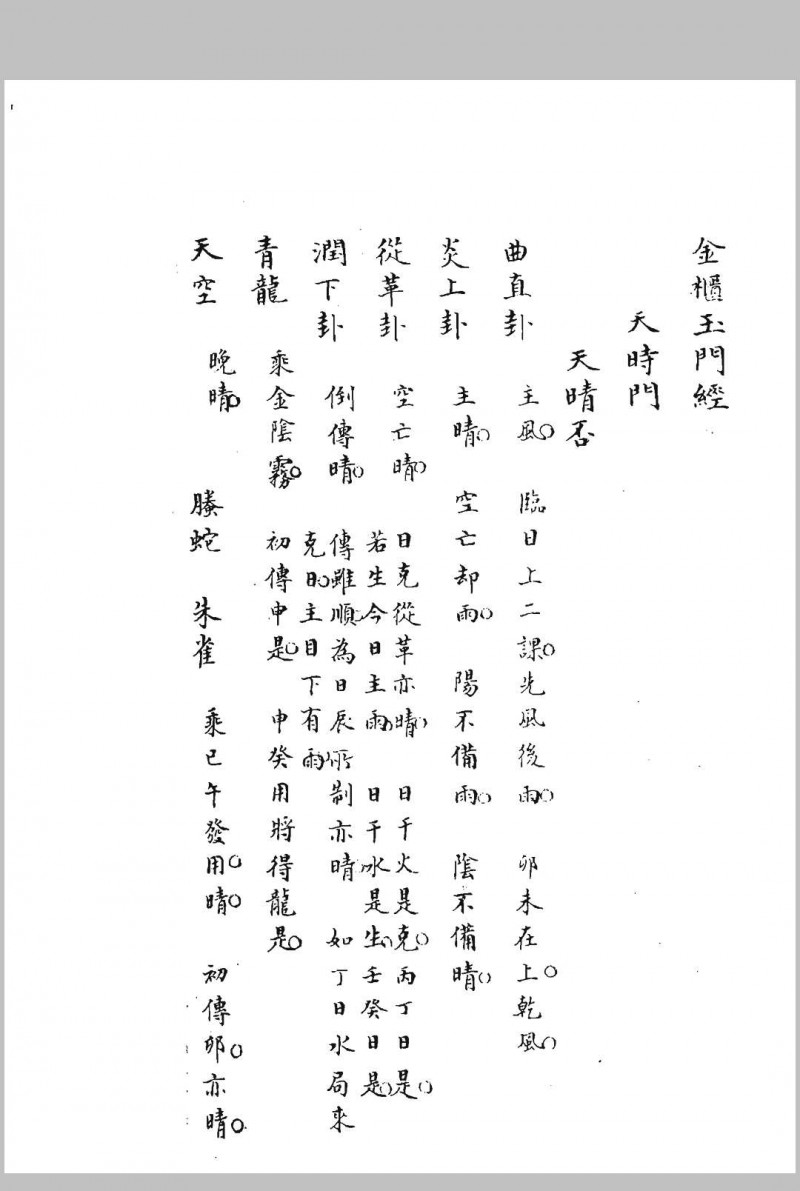 金櫃玉門經
天時門
天晴否
曲直卦 主風○ 臨日上二課○先風後雨○ 卯未在上○乾風○
炎上卦 主晴○ 空亡却雨○ 陽不備雨○ 陰不備晴○
從革卦 空亡晴○ 日克從革亦晴○ 日干火是克○丙丁日是○
若生今日主雨○ 日干水是生○壬癸日是○
潤下卦 倒傳晴○ 傳雖順○為日辰所制亦晴○ 如丁日水局來
克日○主目下有雨○
青龍 乘金陰霧○ 初傳申是○ 申癸用將得龍是○
天空 晚晴○ 螣蛇 朱雀 乘巳午發用○晴○ 初傳卯○亦晴○